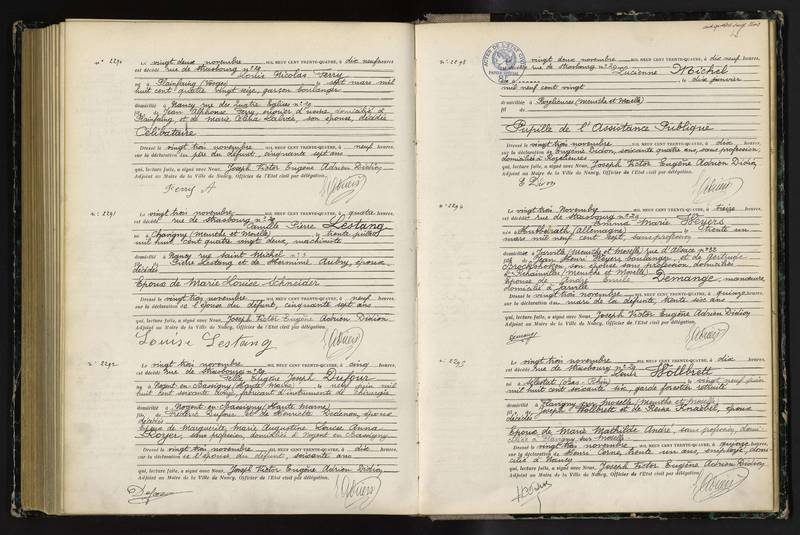 N° 2290
Le vingt deux novembre MIL NEUF CENT VINGT-QUATRE, à dix neuf heures,
est décédé rue de Strasbourg n° 29
Louis Nicolas Ferry
né à Plainfaing (Vosges) le sept mars mil
huit cent quatre vingt seize, garçon boulanger
domicilié à Nancy rue des Quatre Eglises n°
fils de Jean Alphonse Ferry, ouvrier d'usine, domicilié à
Plainfaing, et de Marie son épouse, décédée
Célibataire
Dressé le vingt trois novembre MIL NEUF CENT VINGT-QUATRE, à neuf heures,
sur la déclaration du père du défunt, cinquante sept ans
qui, lecture faite, a signé avec Nous, Joseph Victor Eugène Adrien Didion
Adjoint au Maire de la Ville de Nancy, Officier de l'Etat civil par délégation.
Ferry A
N° 2291
Le vingt trois novembre MIL NEUF CENT VINGT-QUATRE, à quatre heures,
est décédé rue de Strasbourg n° 29
Camille Pierre Lestang
né à Chavigny (Meurthe et Moselle) le trente juillet
mil huit cent quatre vingt deux, machiniste
domicilié à Nancy rue Saint Michel n°
fils de Pierre Lestang et de Hermine Aubry, époux
décédés
Epoux de Marie Louise Schneider
Dressé le vingt trois novembre MIL NEUF CENT VINGT-QUATRE, à neuf heures,
sur la déclaration de l'épouse du défunt, cinquante sept ans
qui, lecture faite, a signé avec Nous, Joseph Victor Eugène Adrien Didion
Adjoint au Maire de la Ville de Nancy, Officier de l'Etat civil par délégation.
Louise Lestang
N° 2292
Le vingt trois novembre MIL NEUF CENT VINGT-QUATRE, à cinq heures,
est décédé rue de Strasbourg n° 29
Félix Eugène Joseph Dufour
né à Nogent en Bassigny (Haute Marne) le neuf juin mil
huit cent soixante fabricant d'instruments de chirurgie
domicilié à Nogent en Bassigny (Haute Marne)
fils de Frédéric Dufour et de Henriette époux
décédés
Epoux de Marguerite Marie Augustine Louise Anna
Royer, sans profession, domiciliée à Nogent en Bassigny
Dressé le vingt trois novembre MIL NEUF CENT VINGT-QUATRE, à dix heures,
sur la déclaration de l'épouse du défunt, soixante ans
qui, lecture faite, a signé avec Nous, Joseph Victor Eugène Adrien Didion
Adjoint au Maire de la Ville de Nancy, Officier de l'Etat civil par délégation.
N° 2293
ACTES DE L'ÉTAT CIVIL
Le vingt deux novembre MIL NEUF CENT VINGT-QUATRE, à dix neuf heures,
est décédée rue de Strasbourg n° 29
Lucienne Woichel
née à le dix janvier
mil neuf cent vingt
domiciliée à Rozelieures (Meurthe et Moselle)
Pupille de l'Assistance Publique
Dressé le vingt trois novembre MIL NEUF CENT VINGT-QUATRE, à dix heures,
sur la déclaration de Eugène Didon, soixante quatre ans, sans profession,
domicilié à Rozelieures
qui, lecture faite, a signé avec Nous, Joseph Victor Eugène Adrien Didion
Adjoint au Maire de la Ville de Nancy, Officier de l'Etat civil par délégation.
E Didon
N° 2294
Le vingt trois Novembre MIL NEUF CENT VINGT-QUATRE, à treize heures,
est décédée rue de Strasbourg n° 29
Emma Marie Heyers
née à (Allemagne) le trente un
mars mil neuf cent sept, sans profession
domiciliée à Jarville (Meurthe et Moselle) rue d'Alsace n° 32
fille de Jean Henri Heyers boulanger, et de Gertrude
son épouse sans profession, domiciliés
à (Meurthe et Moselle)
Epouse de André Emile Demange, manœuvre,
domicilié à Jarville
Dressé le vingt trois novembre MIL NEUF CENT VINGT-QUATRE, à quinze heures,
sur la déclaration du mari de la défunte, trente six ans
qui, lecture faite, a signé avec Nous, Joseph Victor Eugène Adrien Didion
Adjoint au Maire de la Ville de Nancy, Officier de l'Etat civil par délégation.
N° 2295
Le vingt trois novembre MIL NEUF CENT VINGT-QUATRE, à dix heures,
est décédé rue de Strasbourg n° 29
Louis Wollbrett
né à Sélestat (Bas-Rhin) le vingt neuf juin
mil huit cent soixante six, garde forestier retraité
domicilié à Flavigny sur Moselle (Meurthe et Moselle)
fils de Joseph Wollbrett et de Reine Knaebel, époux
décédés
Epoux de Marie Mathilde André, sans profession, domi
ciliée à Flavigny sur Moselle
Dressé le vingt trois novembre MIL NEUF CENT VINGT-QUATRE, à quinze heures,
sur la déclaration de Henri Corne, trente un ans, employé, domi
cilié à Nancy
qui, lecture faite, a signé avec Nous, Joseph Victor Eugène Adrien Didion
Adjoint au Maire de la Ville de Nancy, Officier de l'Etat civil par délégation.